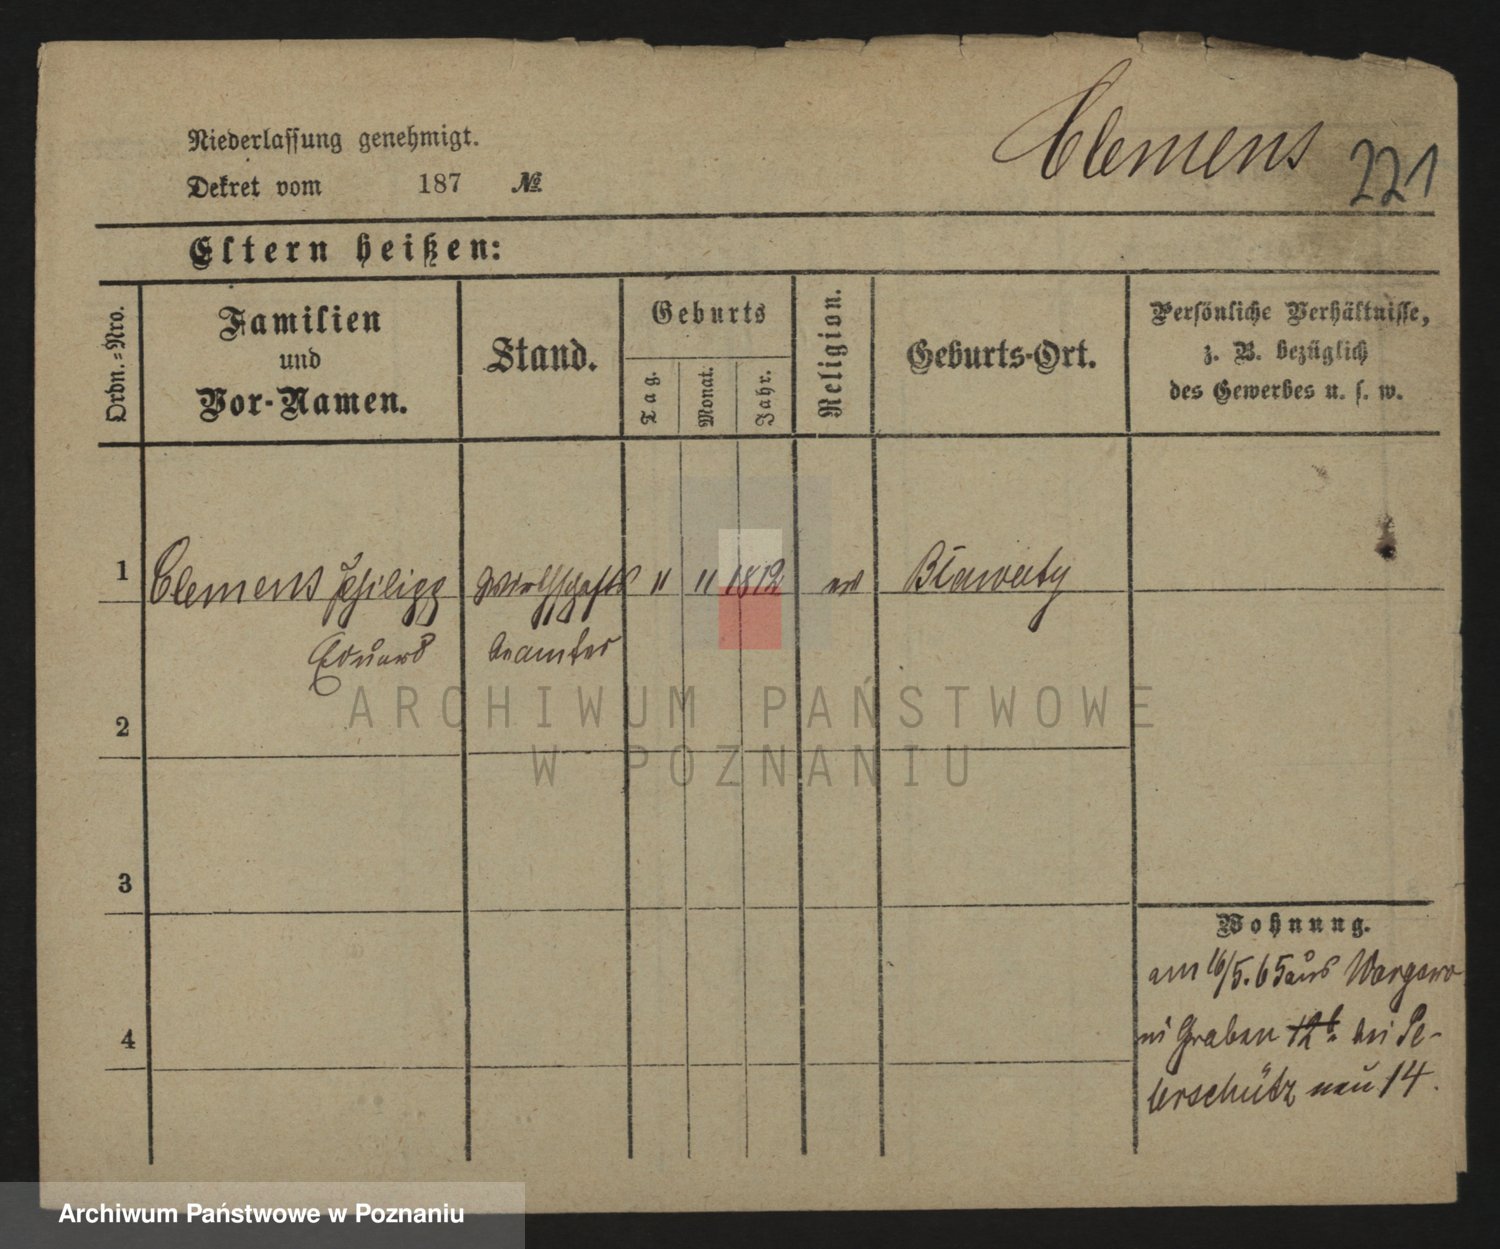 Clemens 221
Niederlassung genehmigt.
Dekret vom 187 №
Eltern heißen:
Ordn.-Nro.
Familien
und
Vor-Namen.
Stand.
Geburts
Tag.
Monat.
Jahr.
Religion.
Geburts-Ort.
Persönliche Verhältnisse,
z. B. bezüglich
des Gewerbes u. s. w.
1 Clemens Philipp Wirthschafts " " 1812 ev
Eduard beamter
2
3
4
Wohnung.
am 16/5.65 aus
Graben 12b bei Pe-
terschütz neu 14.
ARCHIWUM PAŃSTWOWE
W POZNANIU
Archiwum Państwowe w Poznaniu